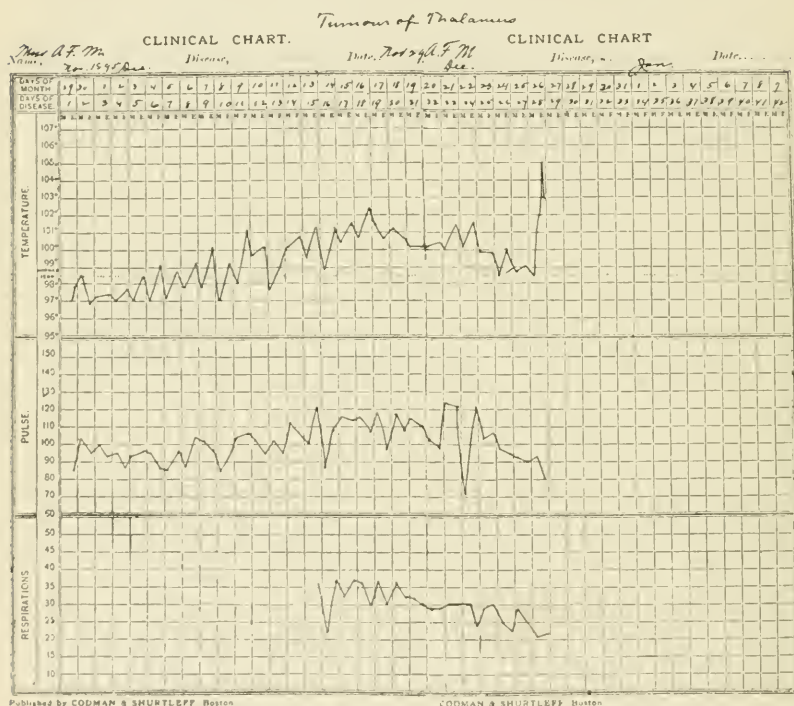 Tumour of Thalamus
CLINICAL CHART. CLINICAL CHART
Name, Miss A.F. M. Disease, Date, Nov 29 A.F. M Disease, Date
Nov. 1895 Dec. Dec. Jan.
DAYS OF MONTH 29 30 1 2 3 4 5 6 7 8 9 10 11 12 13 14 15 16 17 18 19 20 21 22 23 24 25 26 27 28 29 30 31 1 2 3 4 5 6 7 8 9
DAYS OF DISEASE 1 2 3 4 5 6 7 8 9 10 11 12 13 14 15 16 17 18 19 20 21 22 23 24 25 26 27 28 29 30 31 32 33 34 35 36 37 38 39 40 41 42
TEMPERATURE
107°
106°
105°
104°
103°
102°
101°
100°
99°
98°
97°
96°
95°
PULSE
150
140
130
120
110
100
90
80
70
60
RESPIRATIONS
50
45
40
35
30
25
20
15
10
Published by CODMAN & SHURTLEFF Boston CODMAN & SHURTLEFF Boston